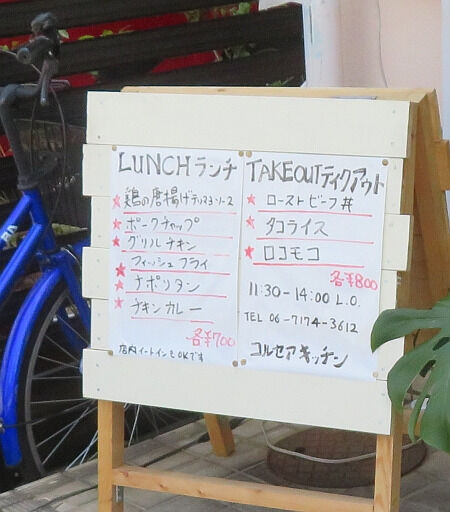 LUNCH ランチ
★ 鶏の唐揚げデリマヨソース
★ ポークチャップ
★ グリルチキン
★ フィッシュフライ
★ ナポリタン
★ チキンカレー
各¥700
店内イートインもOKです
TAKEOUT ティクアウト
★ ローストビーフ丼
★ タコライス
★ ロコモコ
各¥800
11:30-14:00 L.O.
TEL 06-7174-3612
コルセアキッチン